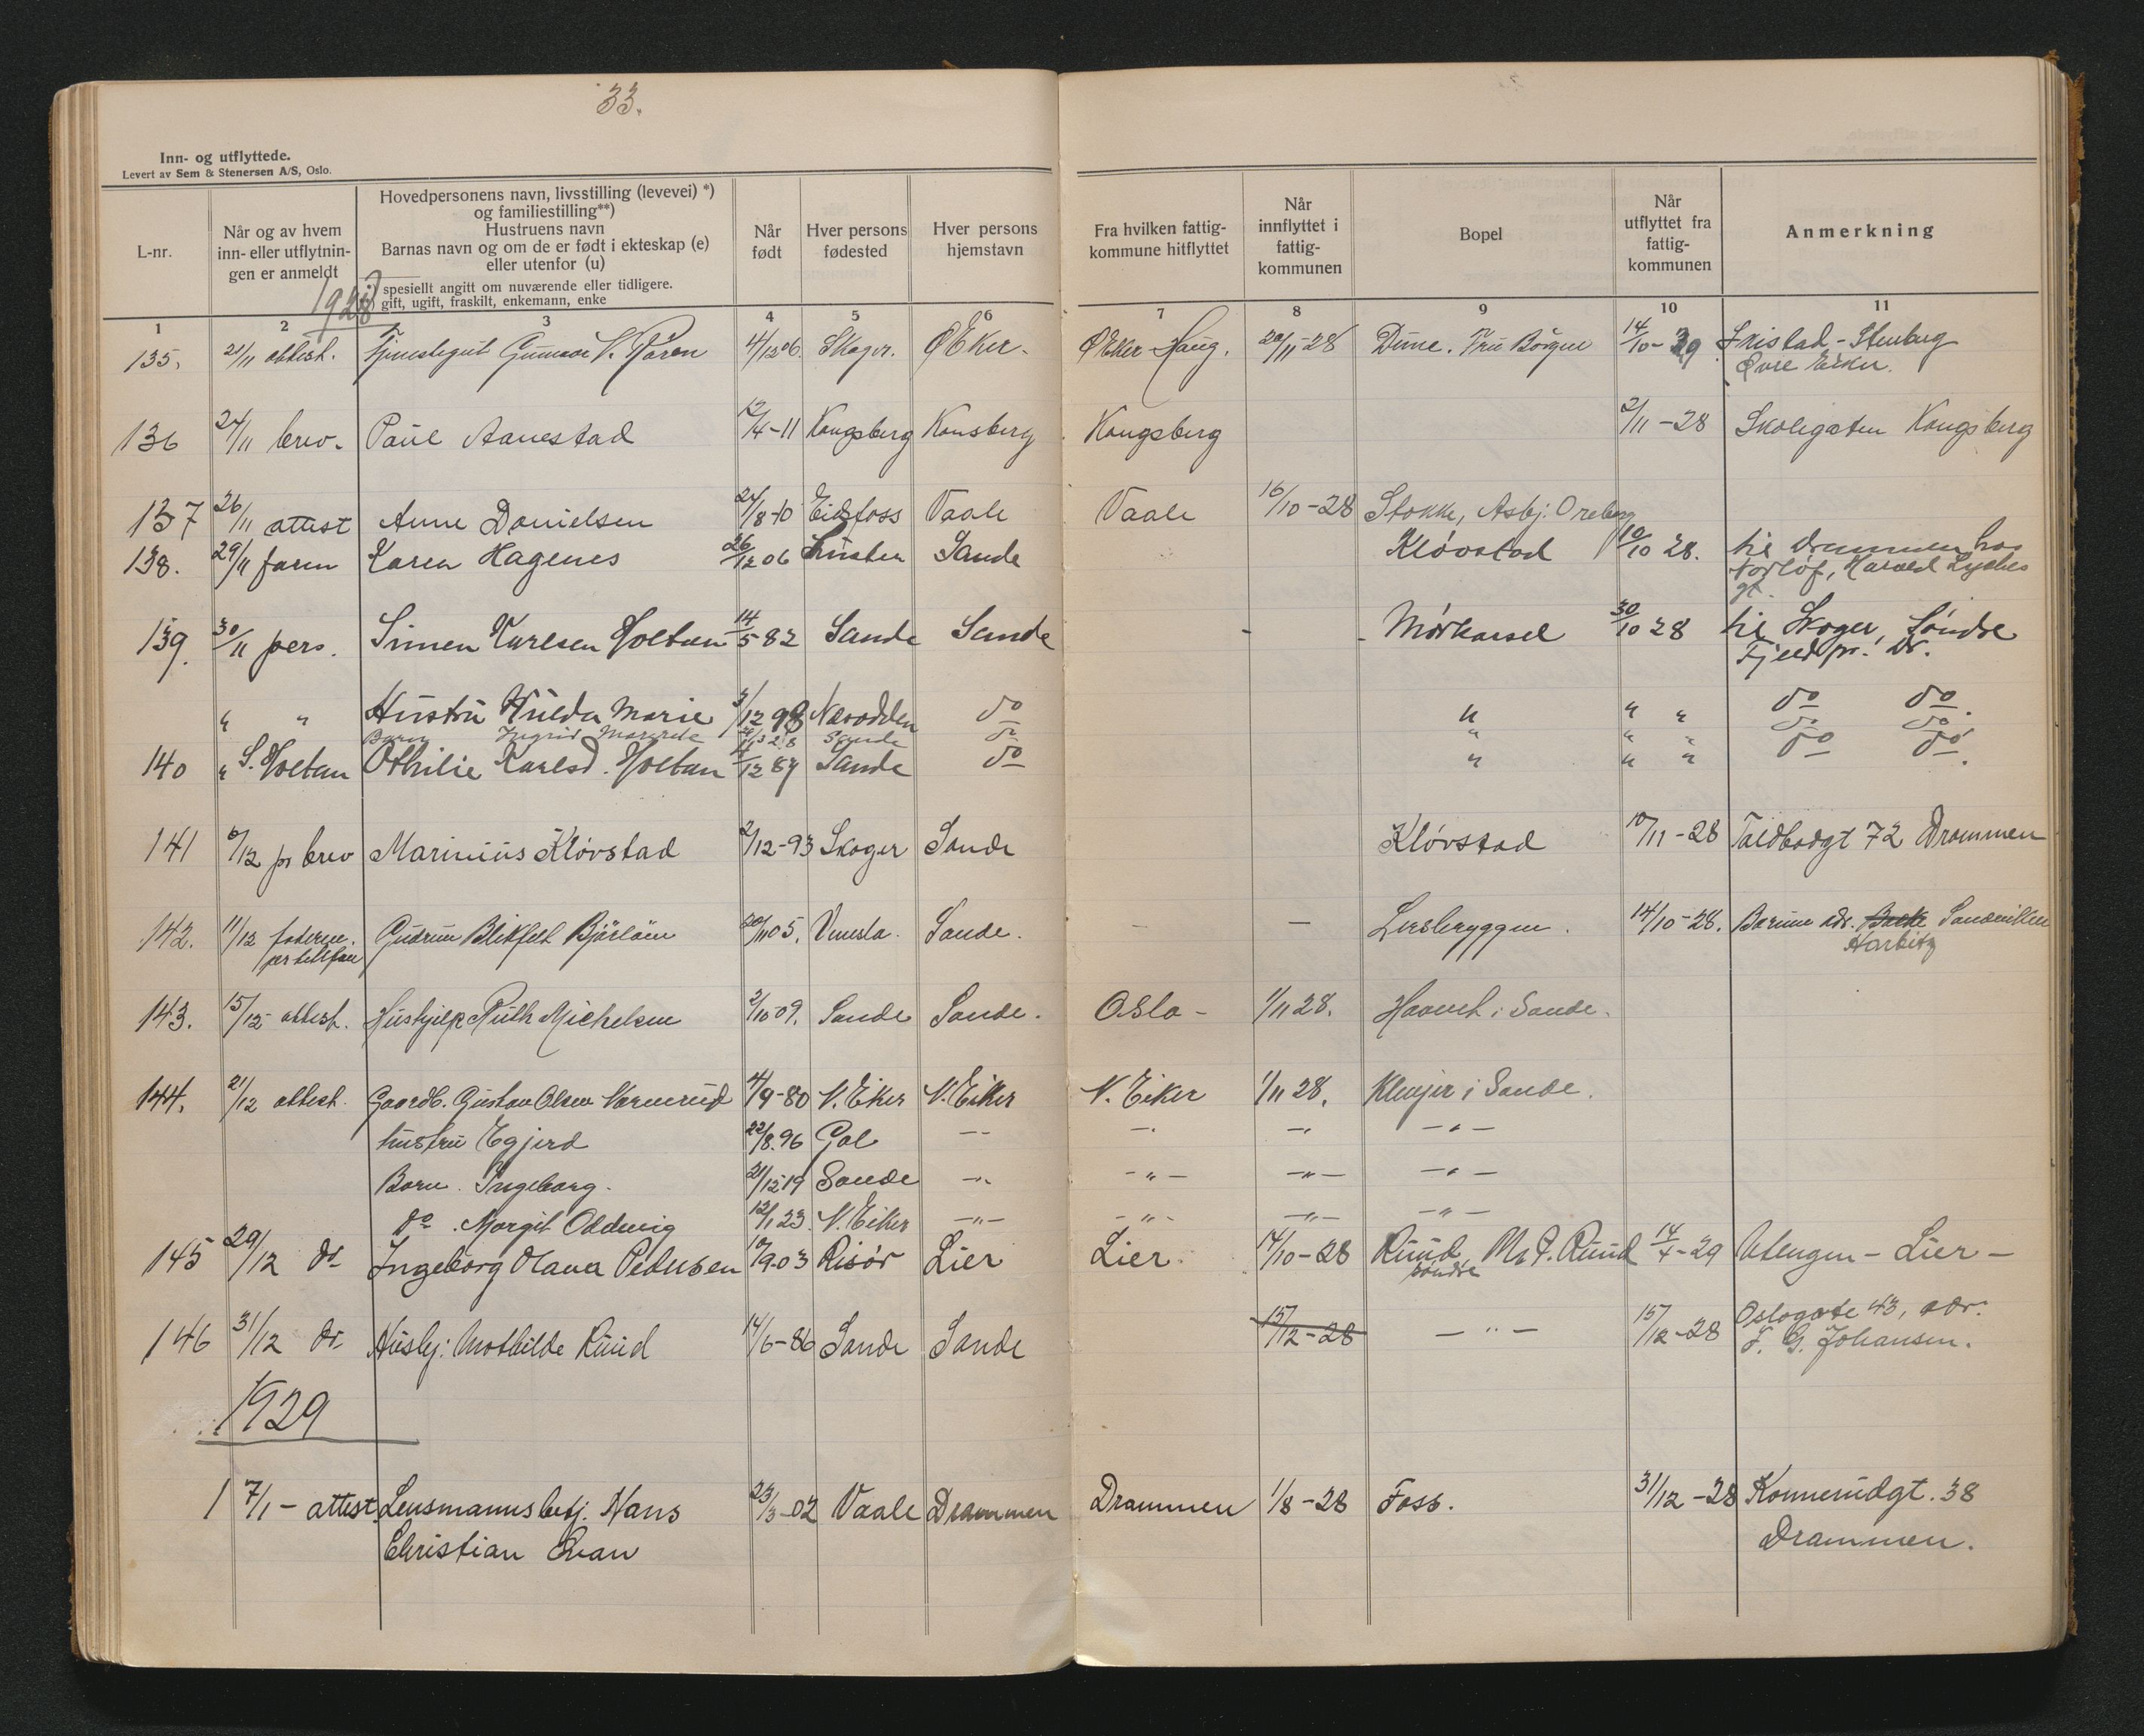 33.
Inn- og utflyttede.
Levert av Sem & Stenersen A/S, Oslo.
L-nr. Når og av hvem inn- eller utflytnin- gen er anmeldt Hovedpersonens navn, livsstilling (levevei) *) og familiestilling**) Hustruens navn Barnas navn og om de er født i ekteskap (e) eller utenfor (u) Når født Hver persons fødested Hver persons hjemstavn Fra hvilken fattig- kommune hitflyttet Når innflyttet i fattig- kommunen Bopel Når utflyttet fra fattig- kommunen Anmerkning
spesiellt angitt om nuværende eller tidligere.
gift, ugift, fraskilt, enkemann, enke
1928
1 2 3 4 5 6 7 8 9 10 11
135. 21/11 attest. Tjenestegut Gunnar 4/12 06. Skoger. Ø Eker. Ø Eker Haug. 20/11-28 Dune. Fru Børgue 14/10-29 Fristad - Stenberg
Øvre Eiker.
136 24/11 brev. Paul Aanestad 12/4-11 Kongsberg Konsberg Kongsberg 2/11-28 Skolegaten Kongsberg
137 26/11 attest Anne Danielsen 24/8-10 Eidsfoss Vaale Vaale 16/10-28 Stokke, Asbj. Oreberg
138. 29/11 faren Karen Hagenes 26/12 06 Sande Kløvstad 10/10 28. til Drammen hos
Harald Lyches
gt.
139. 30/11 pers. Simen Karlsen Holtan 14/5 82 Sande Sande - - Mørkassel 30/10 28 til Skoger, Søndre
Fjeld pr. Dr.
" " Hustru Hulda Marie 3/12 98 Næsodden do " " " do do.
Barn Ingrid Margrete Sande do " " " do do
140 " S. Holtan Othilie Karlsd. Holtan 12 87 Sande do " " " do do.
141 6/12 pr brev Marinius Kløvstad 2/12-93 Skoger Sande Kløvstad 10/11-28 Toldbodgt 72 Drammen
142. 11/12 faderen. Gudrun Blikfelt Bjørløw 20/11 05. Vennesla. Sande. - - Lersbryggen. 14/10-28. Bærum adr. Sandvikken
pr telefon Harbitz
143. 15/12 attest. Hushjelp Ruth Michelsen 2/10-09. Sande Sande. Oslo - 1/11 28. Haavet i Sande.
144. 21/12 attest. Gaardb. Gustav Olsen Varnerud 4/9-80 N. Eker N. Eiker N. Eiker 1/11 28. Klevjer i Sande.
hustru Egjerd 22/8.96 Gol -"- -"- -"- -"-
Barn. Ingeborg. 21/12 19 Sande -"- -"- -"- -"-
do. Margit Oddveig 12/1 23. N. Eiker -"- -"- -"- -"-
145 29/12 do Ingeborg Olava Pedersen 19/9-03 Risør Lier Lier. 14/10-28 Ruud M. P. Ruud 14/4-29 Utengen - Lier -
søndre
146 31/12 do Husbj. Mathilde Ruud 14/6-86 Sande Sande 15/12-28 -"- 15/12-28 Oslogate 43, adr.
F. G. Johansen.
1929
1 7/1 - attest. Lensmannsbetj. Hans 23/3-02 Vaale Drammen Drammen 1/8-28 Foss. 31/12-28 Konnerudgt. 38
Christian Evan Drammen.